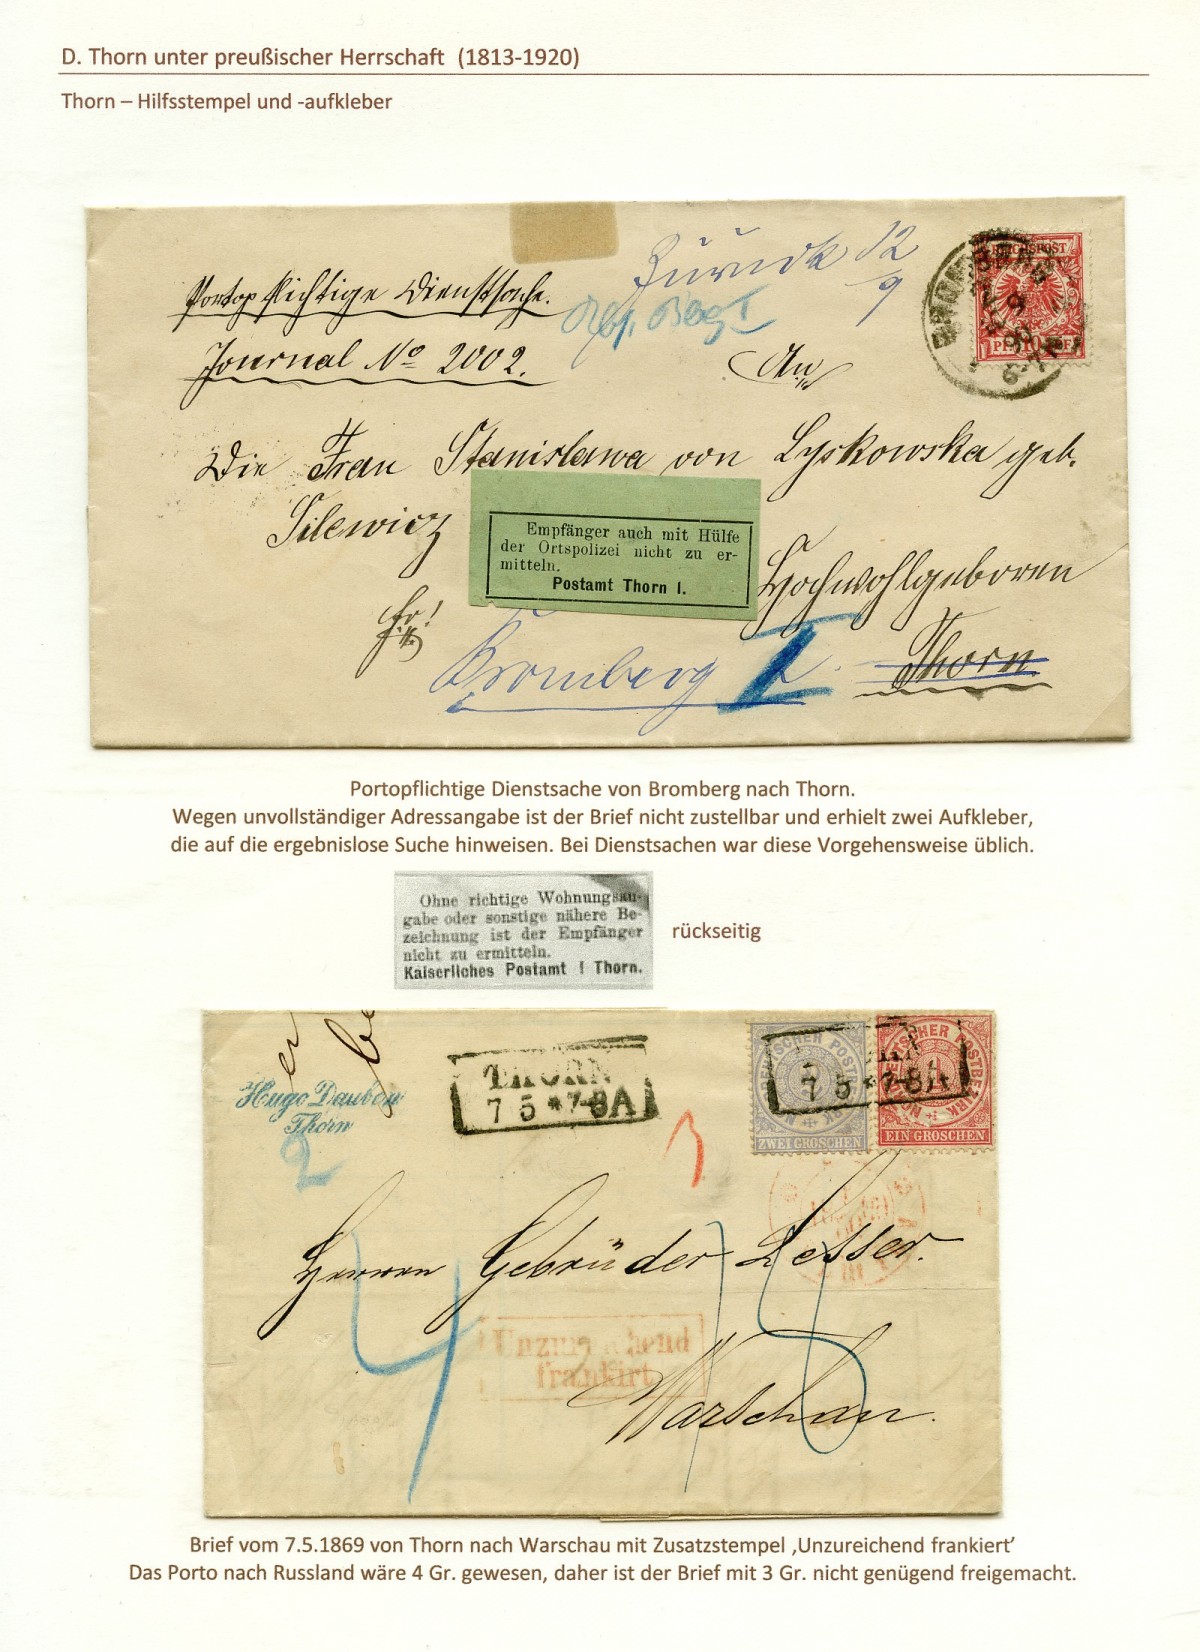 D. Thorn unter preußischer Herrschaft (1813-1920)
Thorn – Hilfsstempel und -aufkleber
Zurück 12/9
Portopflichtige Dienstsache.
Journal No 2002.
An
REICHSPOST
10 PF
BROMBERG
Die Frau Stanislawa von Lyskowska geb.
Silewicz
Empfänger auch mit Hülfe
der Ortspolizei nicht zu er-
mitteln.
Postamt Thorn I.
Hochwohlgeboren
fr!
Bromberg I
Thorn
Portopflichtige Dienstsache von Bromberg nach Thorn.
Wegen unvollständiger Adressangabe ist der Brief nicht zustellbar und erhielt zwei Aufkleber,
die auf die ergebnislose Suche hinweisen. Bei Dienstsachen war diese Vorgehensweise üblich.
Ohne richtige Wohnungsan-
gabe oder sonstige nähere Be-
zeichnung ist der Empfänger
nicht zu ermitteln.
Kaiserliches Postamt I Thorn.
rückseitig
Hugo Dauben
Thorn
2
THORN
7 5 * 7-8A
7 5 * 7-8A
NORDDEUTSCHER POSTBEZIRK
ZWEI GROSCHEN
NORDDEUTSCHER POSTBEZIRK
EIN GROSCHEN
3
Herren Gebrüder Lesser.
4
Unzureichend
frankirt
Warschau.
Brief vom 7.5.1869 von Thorn nach Warschau mit Zusatzstempel ‚Unzureichend frankiert’
Das Porto nach Russland wäre 4 Gr. gewesen, daher ist der Brief mit 3 Gr. nicht genügend freigemacht.